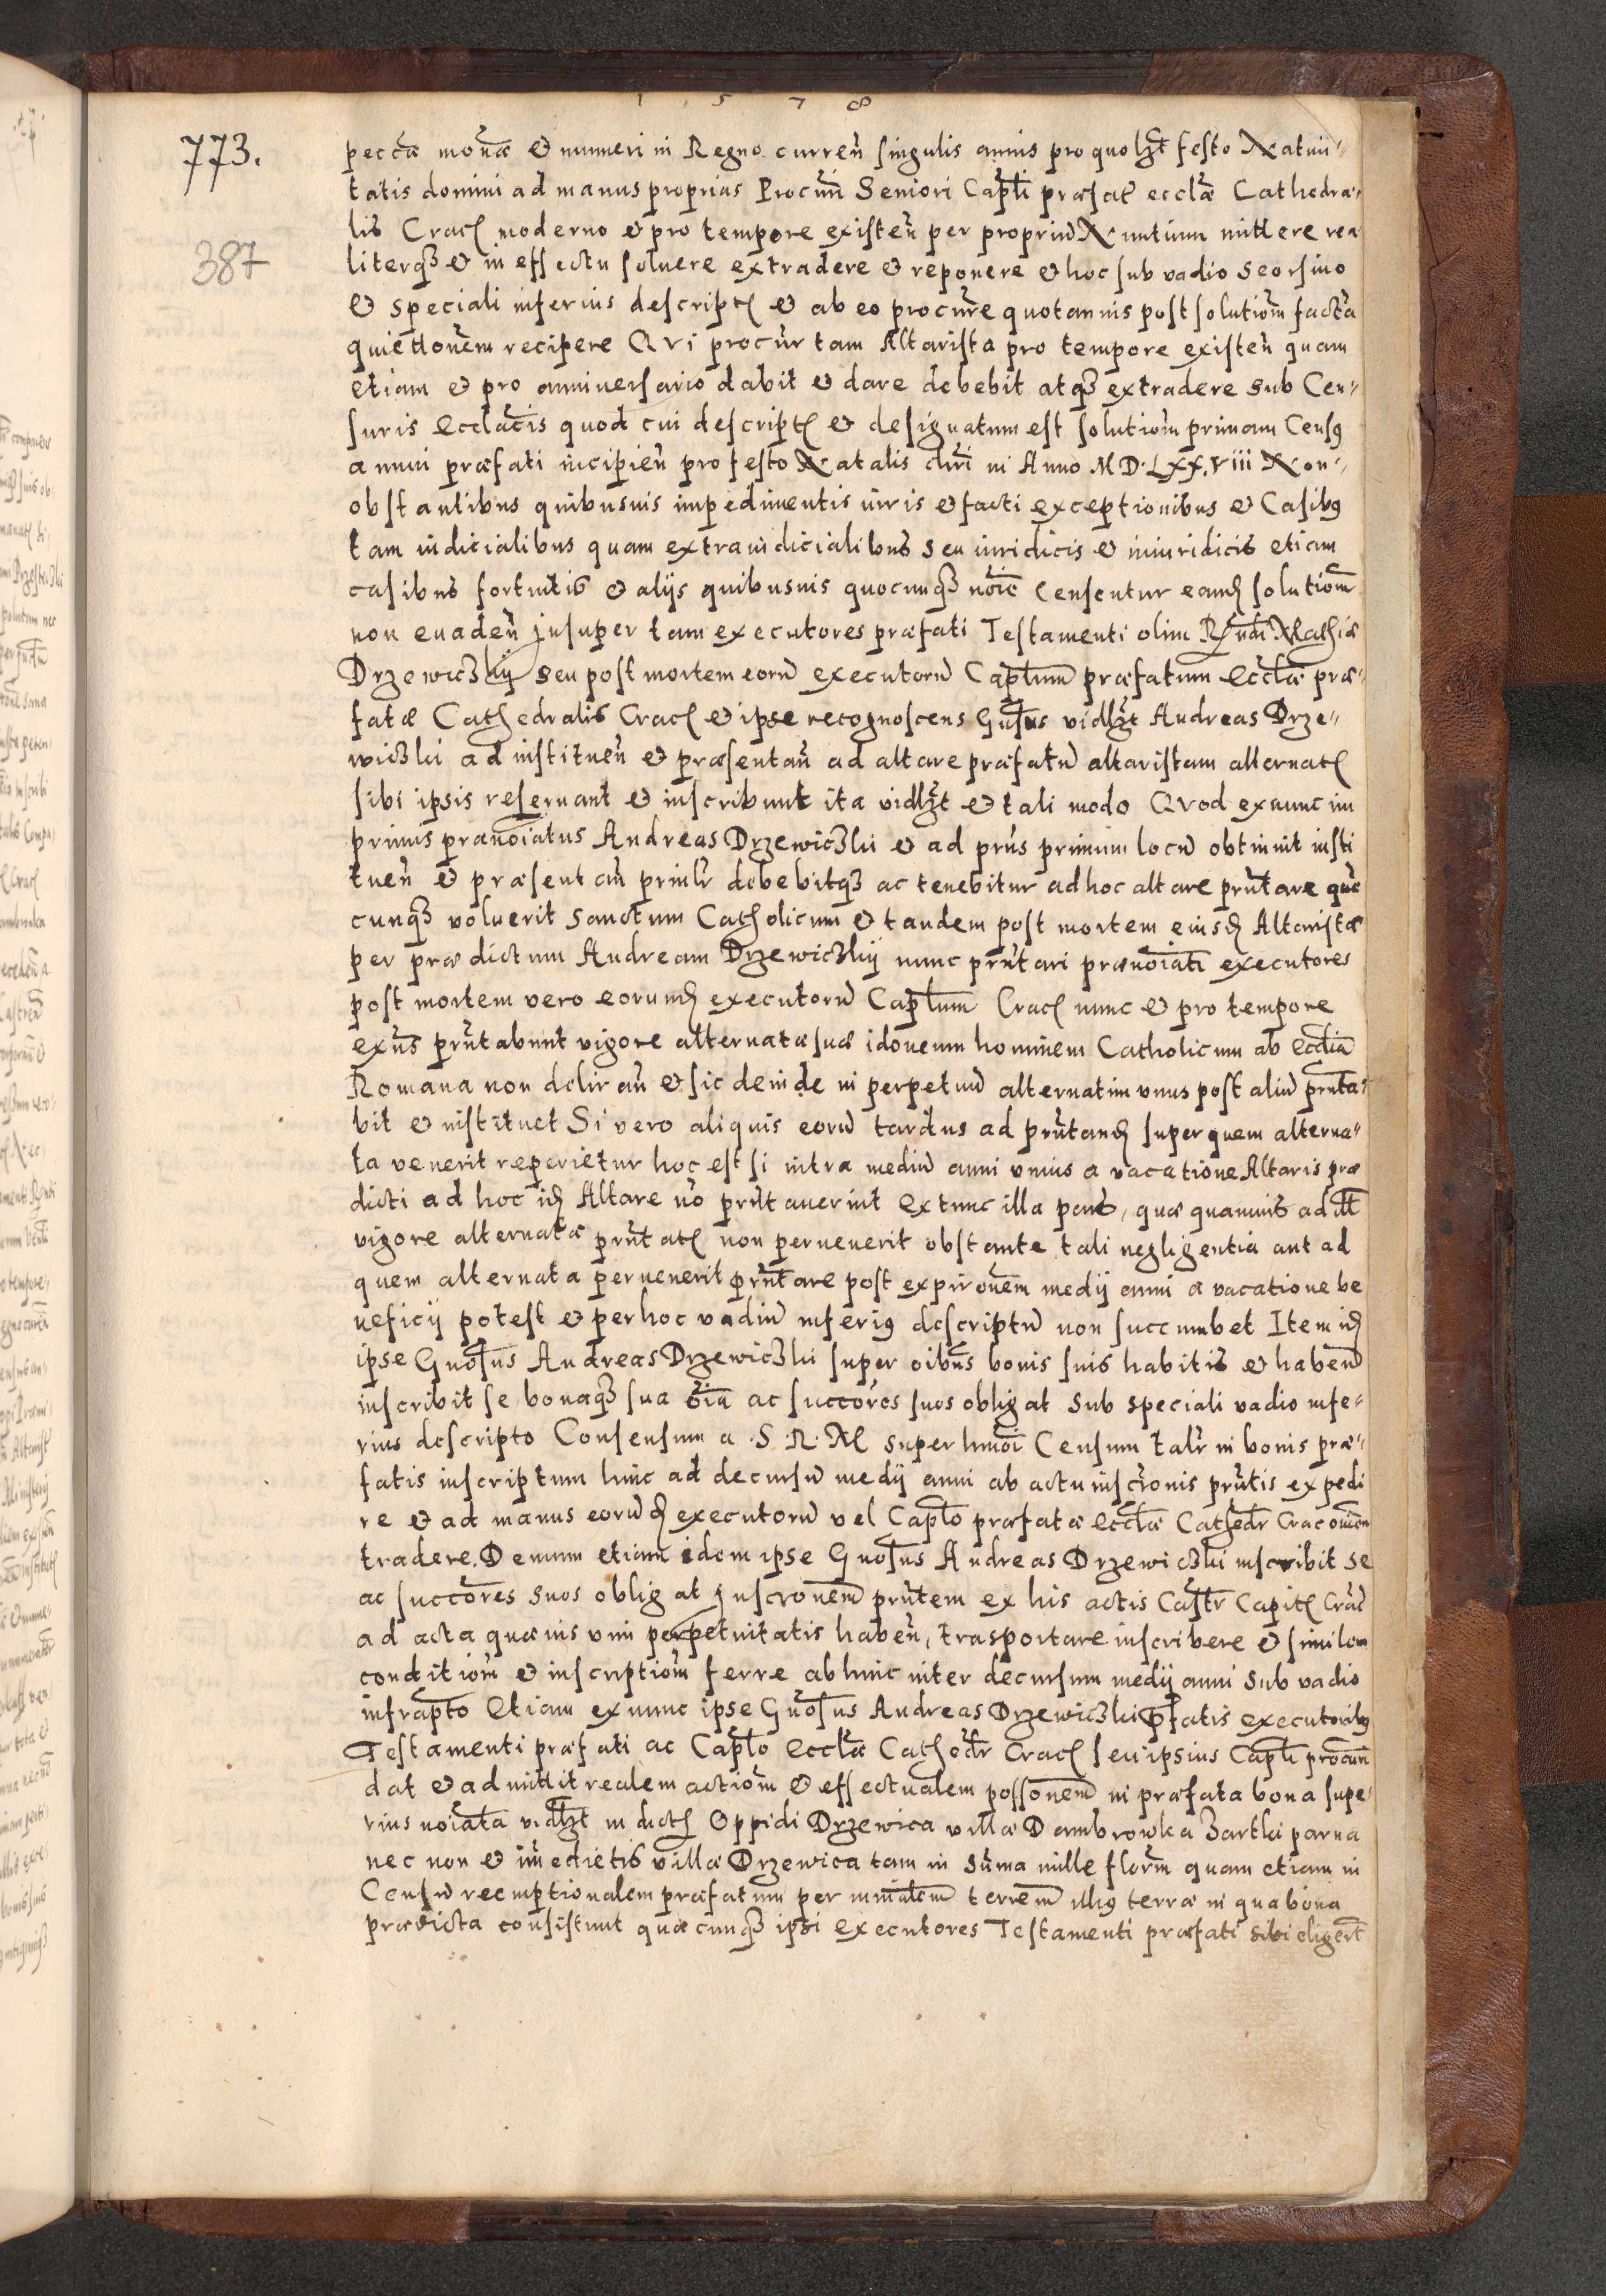 1578
773.
387
peccã monæ et numeri in Regno curreñ singulis annis pro quolȝt festo Natiui„
tatis domini ad manus proprias Procuri Seniori Capłi præfat ecclæ Cathedra„
lis Crac moderno et pro tempore existeñ per propriũ Nuntium mittere rea
literqȝ et in effectu soluere extradere et reponere et hoc sub vadio seorsiuo
et speciali inferius descript et ab eo procure quotannis post solutiom̃ factã
quiettonem recipere Qvi procur tam Altarista pro tempore existeñ quam
etiam et pro anniuersario dabit et dare debebit atqȝ extradere sub Cen„
suris Ecclãcis quod cui descript et designatum est solutiom̃ primam Census
annui præfati incipieñ pro festo Natalis dñi in Anno M D. Lxx.viii Non„
obstantibus quibusuis impedimentis iuris et facti exceptionibus et Casibus
tam iudicialibus quam extraiudicialibus seu iuridicis et iniuridicis etiam
casibus fortuitis et alijs quibusuis quocunqȝ noĩe Censentur eand solutiom̃
non euadeñ Insuper tam executores præfati Testamenti olim Rñdi Mathiæ
Drzewiczkij seu post mortem eorũ executorũ Capłum præfatum Ecclæ præ„
fatæ Cathedralis Crac et ipse recognoscens Gñsus vidłȝt Andreas Drze„
wiczki ad instituen̄ et præsentan̄ ad altare præfatũ altaristam alternat
sibi ipsis reseruant et inscribunt ita vidłȝt et tali modo Qvod exnunc im
primis prænoĩatus Andreas Drzewiczki et ad prñs primum locũ obtinuit insti
tueñ et præsentan̄ primłr debebitqȝ ac tenebitur ad hoc altare prñtare que
cunqȝ voluerit sanctum Catholicum et tandem post mortem eiusd Altaristæ
per prædictum Andream Drzewiczkij nunc prñtari prænoĩati executores
post mortem vero eorumd executorũ Capłum Crac nunc et pro tempore
exñs prñtabunt vigore alternatæ suæ idoneum hominem Catholicum ab Ecclia
Romana non deliran̄ et sic deinde in perpetuũ alternatim vnus post aliũ prñta„
bit et instituet Si vero aliquis eorũ tardus ad prñtand super quem alterna„
ta venerit reperietur hoc est si intra mediũ anni vnius a vacatione Altaris præ
dicti ad hoc id Altare nõ prñtauerint Extunc illa pars, quæ quamuis ad illã
vigore alternatæ prñtat non peruenerit obstante tali negligentia aut ad
quem alternata peruenerit prñtare post expironem medij anni a vacatione be
neficij potest et per hoc vadiũ inferius descriptũ non succumbet Item id
ipse Gnosus Andreas Drzewiczki super oĩbus bonis suis habitis et habend
inscribit se bonaqȝ sua oĩa ac succores suos obligat sub speciali vadio infe„
rius descripto Consensum a .S. R. M. super hmõi Censum talr in bonis præ„
fatis inscriptum hinc ad decursũ medij anni ab actu inscronis prñtis expedi
re et ad manus eorũd executorũ vel Capło præfatæ Ecclæ Cathedr Cracouien̄
tradere. Demum etiam idem ipse Gnosus Andreas Drzewiczki inscribit se
ac succores suos obligat Inscronem prñtem ex his actis Castr Capit Crac
ad acta quæuis vim perpetuitatis haben̄, trasportare inscribere et similem
conditiom̃ et inscriptiom̃ ferre abhinc inter decursum medij anni sub vadio
infrapto Etiam exnunc ipse Gnosus Andreas Drzewiczki pfatis executoribus
Testamenti præfati ac Capło Ecclæ Cathedr Crac seu ipsius Capłi procuri
dat et admittit realem actiom̃ et effectualem possonem in præfata bona supe„
rius noĩata vidłȝt in dicti Oppidi Drzewica villæ Dambrowka Zartki parua
nec non et im̃edietis villæ Drzewica tam in suma mille florm̃ quam etiam in
Censũ reemptionalem præfatum per minialem terrem illius terræ in qua bona
prædicta consistunt quæcunqȝ ipsi executores Testamenti præfati sibi eligert